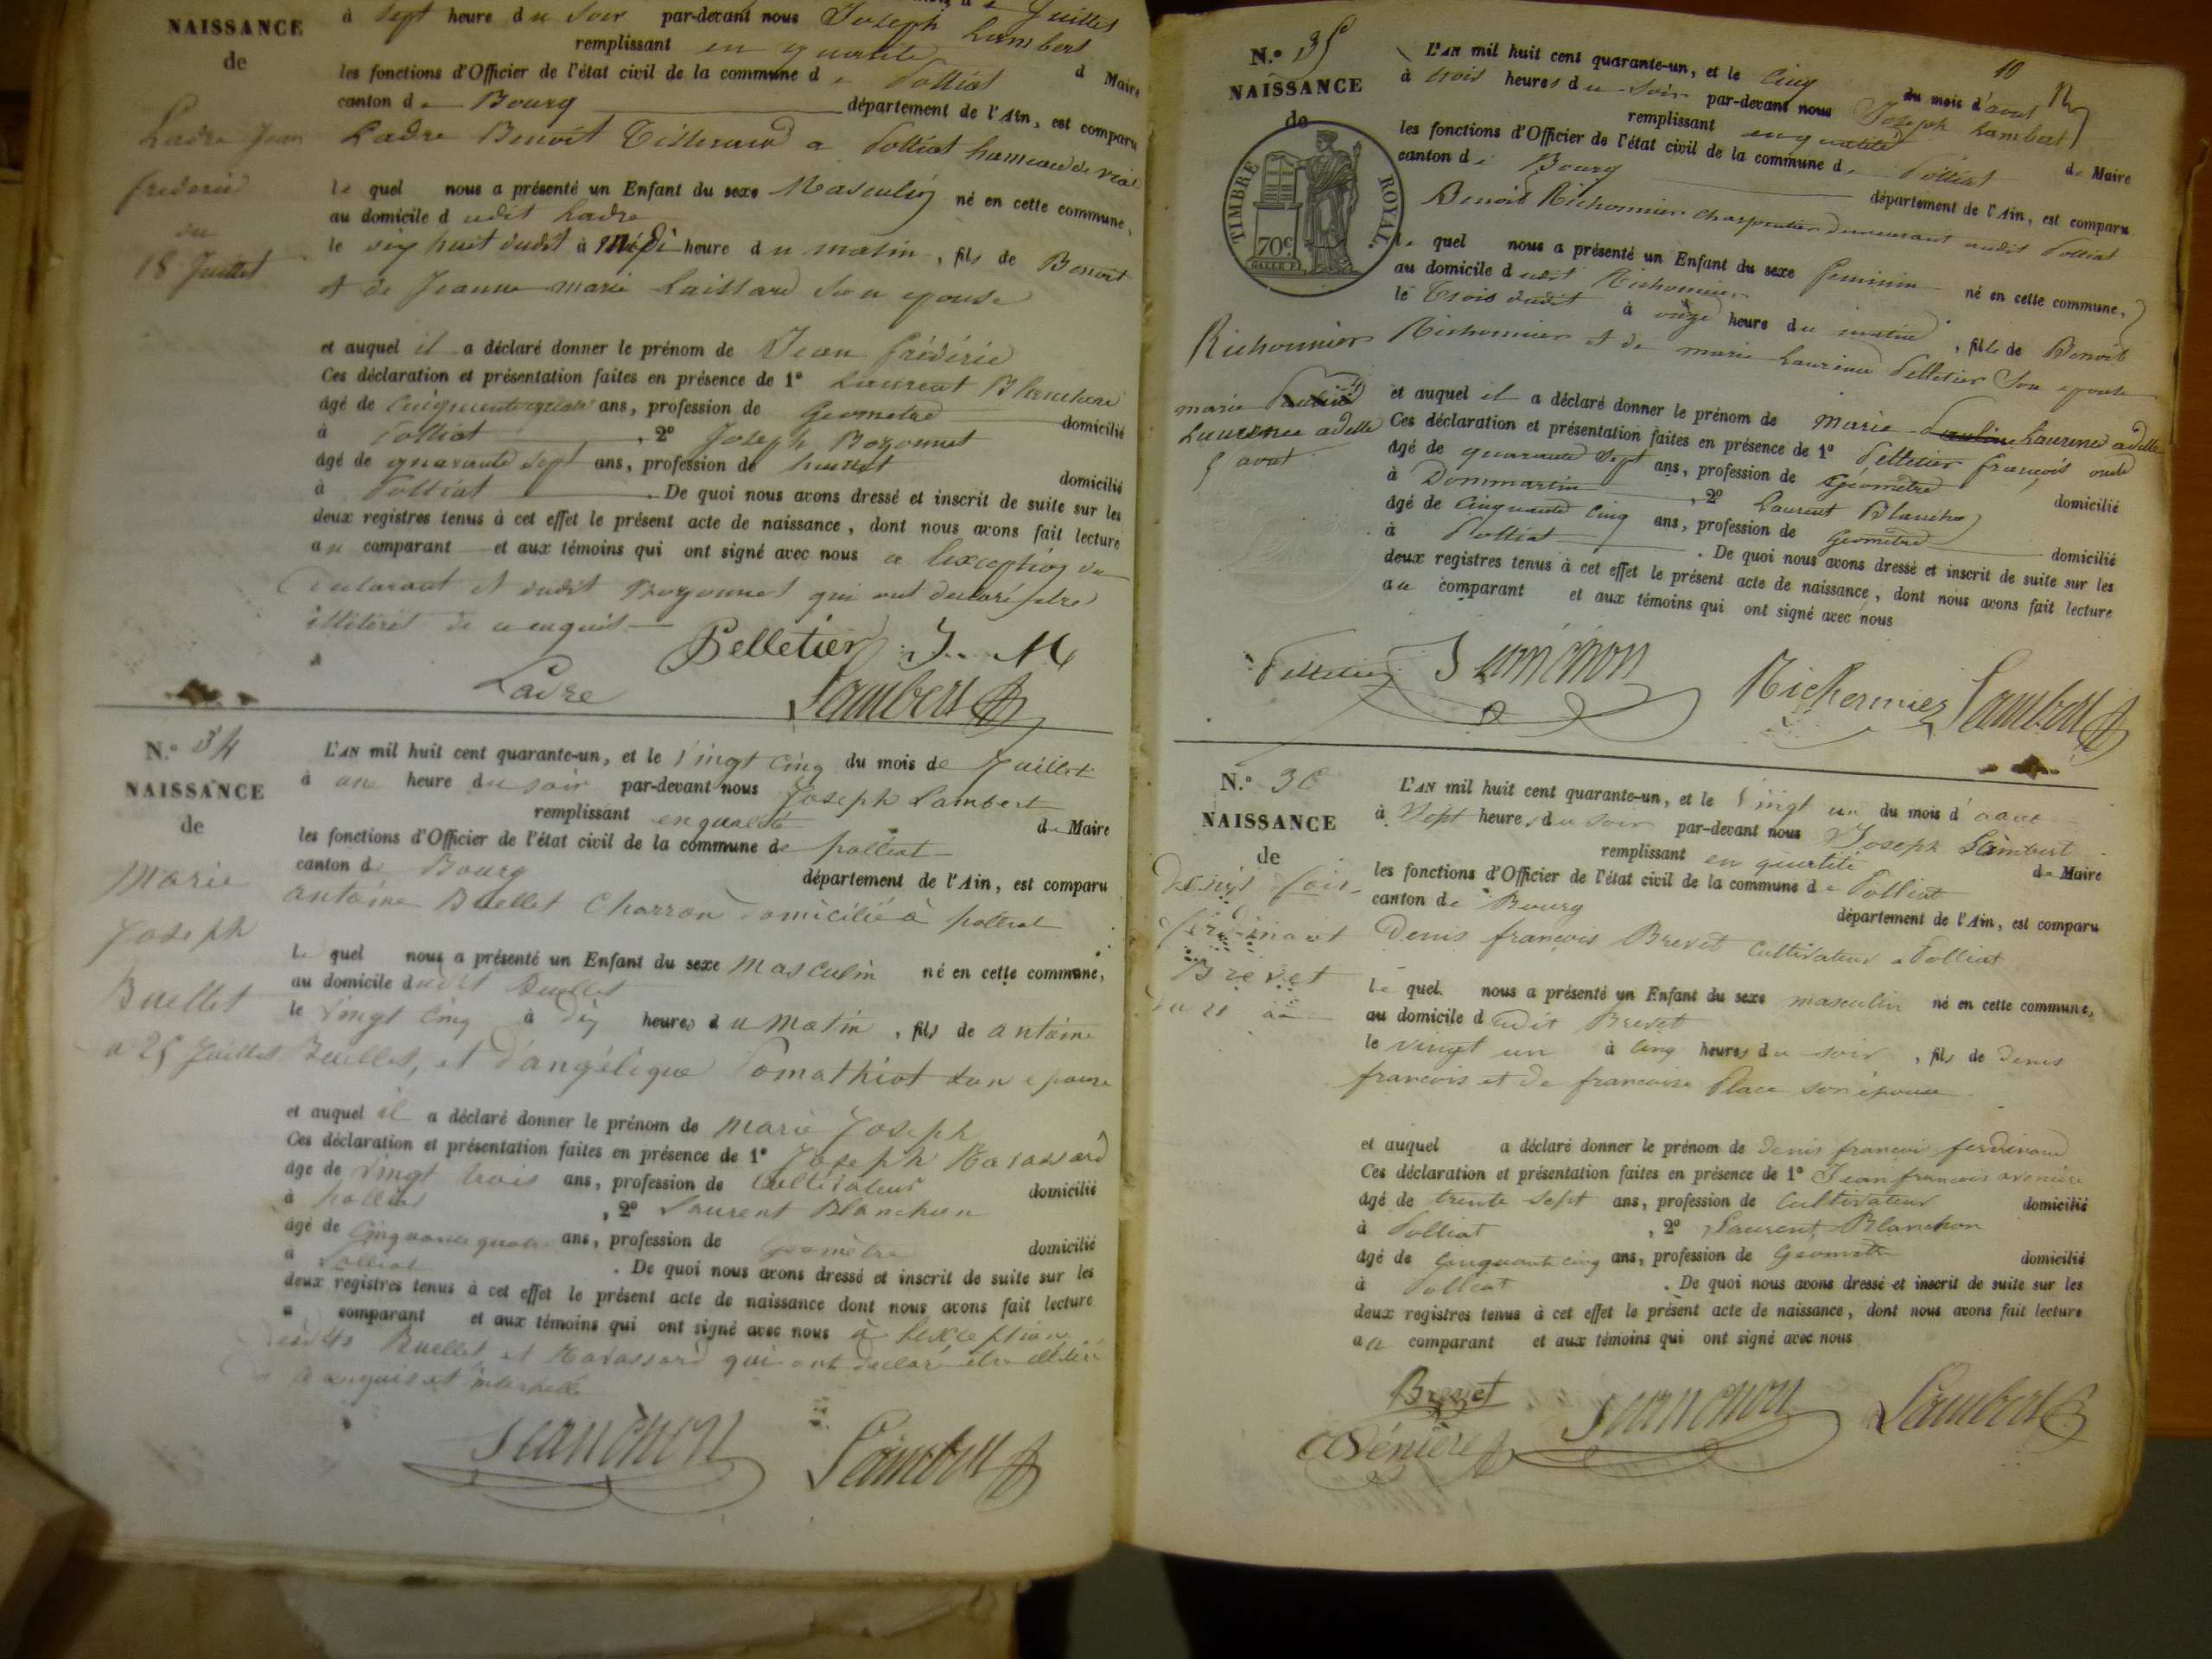 NAISSANCE
de
Ladre Jean
frédéric
du
18 Juillet
Juillet
à sept heure du soir par-devant nous Joseph Lambert
remplissant en qualité d Maire
les fonctions d'Officier de l'état civil de la commune de Polliat
canton de Bourg département de l'Ain, est comparu
Ladre Benoit Tisserand a Polliat hameau de
le quel nous a présenté un Enfant du sexe Masculin né en cette commune,
au domicile dudit Ladre
le dix huit dudit à midi heure du matin, fils de Benoit
et de Jeanne marie Laissard son epouse
et auquel il a déclaré donner le prénom de Jean frédéric
Ces déclaration et présentation faites en présence de 1º Laurent Blanchon
âgé de cinquante quatre ans, profession de Géometre domicilié
à Polliat, 2º Joseph Bozonnet
âgé de quarante sept ans, profession de domicilié
à Polliat. De quoi nous avons dressé et inscrit de suite sur les
deux registres tenus à cet effet le présent acte de naissance, dont nous avons fait lecture
au comparant et aux témoins qui ont signé avec nous a lexception du
declarant et dudit Bozonnet qui ont declaré etre
illitéré de ce enquis
Pelletier J. M
Ladre Lambert
N.º 34
NAISSANCE
de
Marie
Joseph
Buellet
25 Juillet
L'AN mil huit cent quarante-un, et le vingt cinq du mois de Juillet
à une heure du soir par-devant nous Joseph Lambert
remplissant en qualité de Maire
les fonctions d'Officier de l'état civil de la commune de polliat
canton de Bourg département de l'Ain, est comparu
antoine Buellet Charron domicilié à polliat
le quel nous a présenté un Enfant du sexe masculin né en cette commune,
au domicile dudit Buellet
le vingt cinq à dix heures du matin, fils de antoine
Buellet, et d'angélique Pomathiot son epouse
et auquel il a déclaré donner le prénom de Marie Joseph
Ces déclaration et présentation faites en présence de 1º Joseph Ravassard
âgé de vingt trois ans, profession de Cultivateur domicilié
à polliat, 2º Laurent Blanchon
âgé de cinquante quatre ans, profession de Géomètre domicilié
à Polliat. De quoi nous avons dressé et inscrit de suite sur les
deux registres tenus à cet effet le présent acte de naissance dont nous avons fait lecture
a comparant et aux témoins qui ont signé avec nous à lexception
Buellet et Ravassard qui ont declaré etre
enquis et interpellé
Blanchon Lambert
10
N.º 35
NAISSANCE
de
TIMBRE ROYAL.
70c
Richonnier
marie
Laurence adelle
5 aout
L'AN mil huit cent quarante-un, et le cinq du mois d'aout
à trois heures du soir par-devant nous Joseph Lambert
remplissant en qualité de Maire
les fonctions d'Officier de l'état civil de la commune de Polliat
canton de Bourg département de l'Ain, est comparu
Benoit Richonnier charpentier demeurant audit Polliat
le quel nous a présenté un Enfant du sexe feminin né en cette commune,
au domicile dudit Richonnier
le trois dudit à onze heure du matin, fille de Benoit
Richonnier et de marie Laurence Pelletier son epouse
et auquel il a déclaré donner le prénom de marie Laurence adelle
Ces déclaration et présentation faites en présence de 1º Pelletier françois oncle
âgé de quarante sept ans, profession de Géomètre domicilié
à Dommartin, 2º Laurent Blanchon
âgé de cinquante cinq ans, profession de Géomètre domicilié
à Polliat. De quoi nous avons dressé et inscrit de suite sur les
deux registres tenus à cet effet le présent acte de naissance, dont nous avons fait lecture
au comparant et aux témoins qui ont signé avec nous
Pelletier Blanchon Richonnier Lambert
N.º 36
NAISSANCE
de
Denis
ferdinant
Brevet
L'AN mil huit cent quarante-un, et le vingt un du mois d'aout
à sept heures du soir par-devant nous Joseph Lambert
remplissant en qualité de Maire
les fonctions d'Officier de l'état civil de la commune de Polliat
canton de Bourg département de l'Ain, est comparu
Denis françois Brevet cultivateur a Polliat
le quel nous a présenté un Enfant du sexe masculin né en cette commune,
au domicile dudit Brevet
le vingt un à cinq heures du soir, fils de denis
francois et de francoise Place son épouse
et auquel a déclaré donner le prénom de denis francois ferdinand
Ces déclaration et présentation faites en présence de 1º Jean francois avenière
âgé de trente sept ans, profession de Cultivateur domicilié
à Polliat, 2º Laurent Blanchon
âgé de cinquante cinq ans, profession de Geometre domicilié
à Polliat. De quoi nous avons dressé et inscrit de suite sur les
deux registres tenus à cet effet le présent acte de naissance, dont nous avons fait lecture
au comparant et aux témoins qui ont signé avec nous
Brevet Blanchon Lambert
Avénière